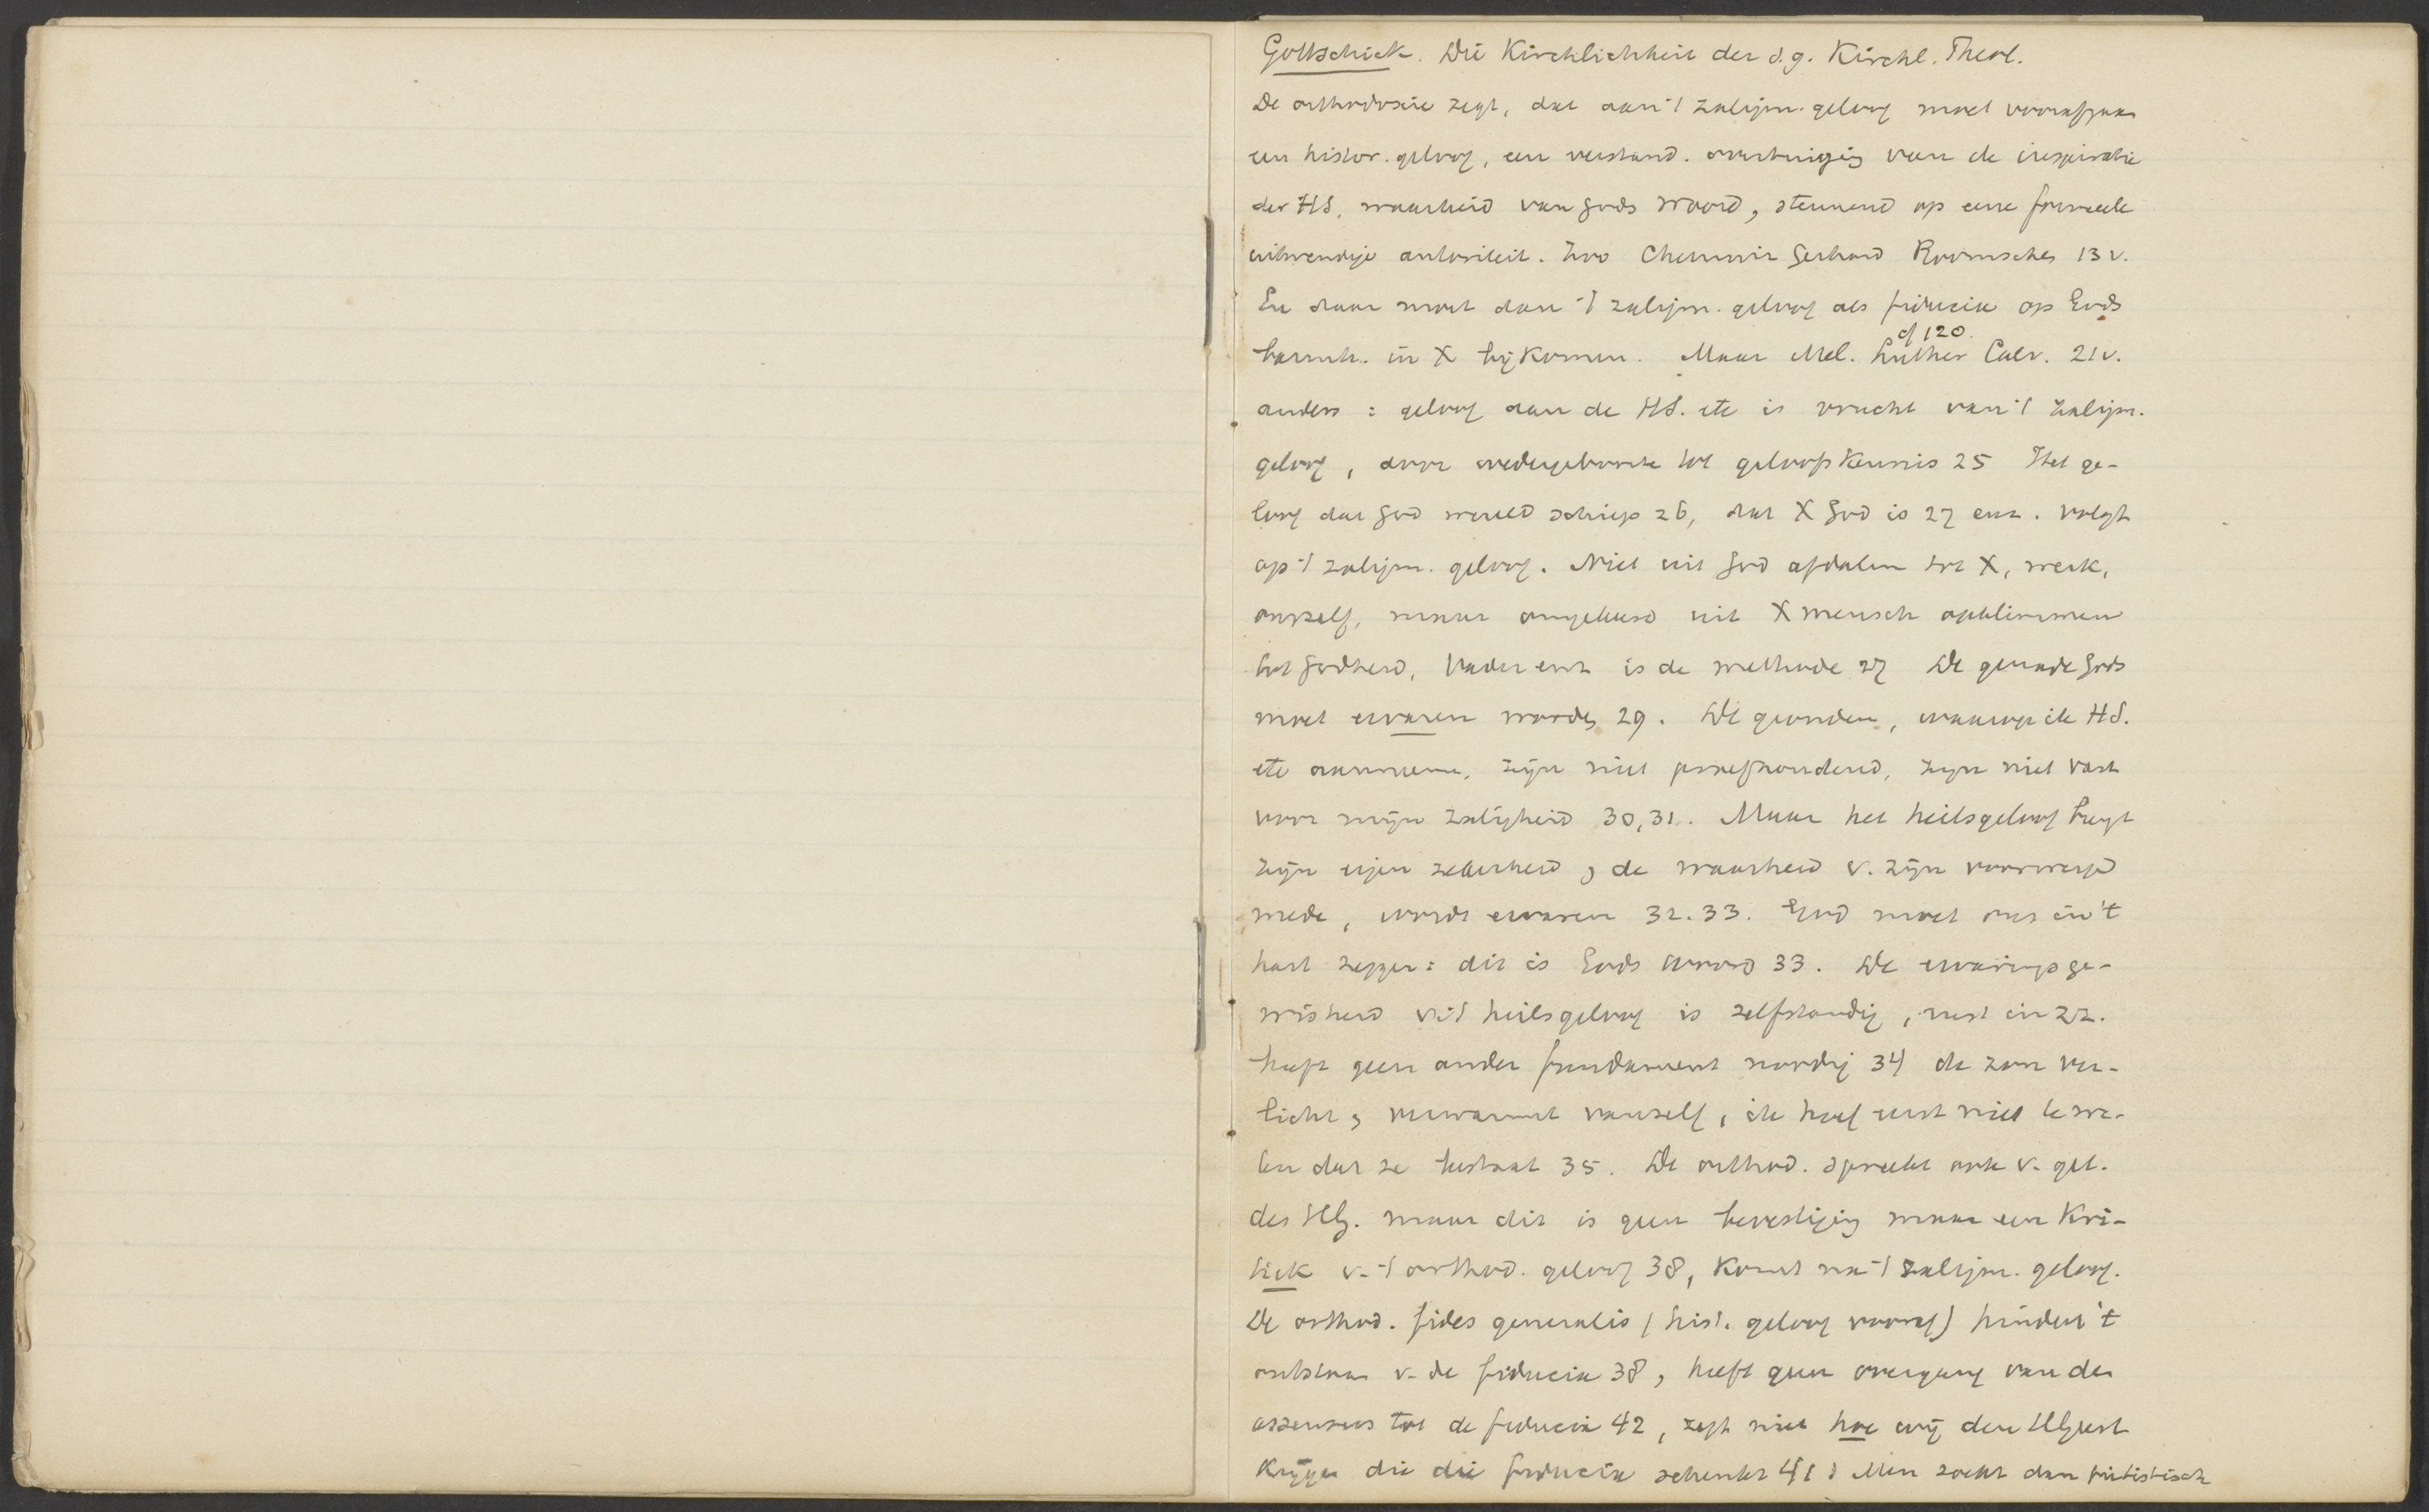 Gottschick. Die Kirchlichkeit der s.g. Kirchl. Theol.
De orthodoxie zegt, dat aan 't zaligm. geloof moet voorafgaan
een histor. geloof, een verstand. overtuiging van de inspiratie
der HS, waarheid van Gods woord, steunend op eene formeele
uitwendige autoriteit. Zoo Chemniz Gerhard Roomschen 13 v.
En daar moet dan 't zaligm. geloof als fiducia op Gods
barmh. in X bijkomen. Maar Mel. Luther Calv. 21 v.
cf 120.
anders : geloof aan de HS. etc is vrucht van 't zaligm.
geloof, door wedergeboorte tot geloofskennis 25 Het ge-
loof dat God wereld schiep 26, dat X God is 27 enz. volgt
op 't zaligm. geloof. Niet uit God afdalen tot X, werk,
onszelf, maar omgekeerd uit X mensch opklimmen
tot Godheid, Vader enz is de methode 27 De genade Gods
moet ervaren worden 29. De gronden, waarop ik HS.
etc aanneem, zijn niet proefhoudend, zijn niet vast
voor mijn zaligheid 30,31. Maar het heilsgeloof brengt
zijn eigen zekerheid, de waarheid v. zijn voorwerp
mede, wordt ervaren 32.33. God moet ons in 't
hart zeggen: dit is Gods woord 33. De ervaringsge-
wisheid v. 't heilsgeloof is zelfstandig, rust in zz.
heeft geen ander fundament noodig 34 de zon ver-
licht, verwarmt vanzelf, ik hoef eerst niet te we-
ten dat ze bestaat 35. De orthod. spreekt ook v. get.
des HG. maar dit is geen bevestiging maar een Kri-
tiek v. 't orthod. geloof 38, komt na 't zaligm. geloof.
De orthod. fides generalis (hist. geloof vooraf) hindert 't
ontstaan v. de fiducia 38, heeft geen overgang van den
assensus tot de fiducia 42, zegt niet hoe wij den HGeest
krijgen die die fiducia schenkt 41 Men zoekt dan piëtistisch